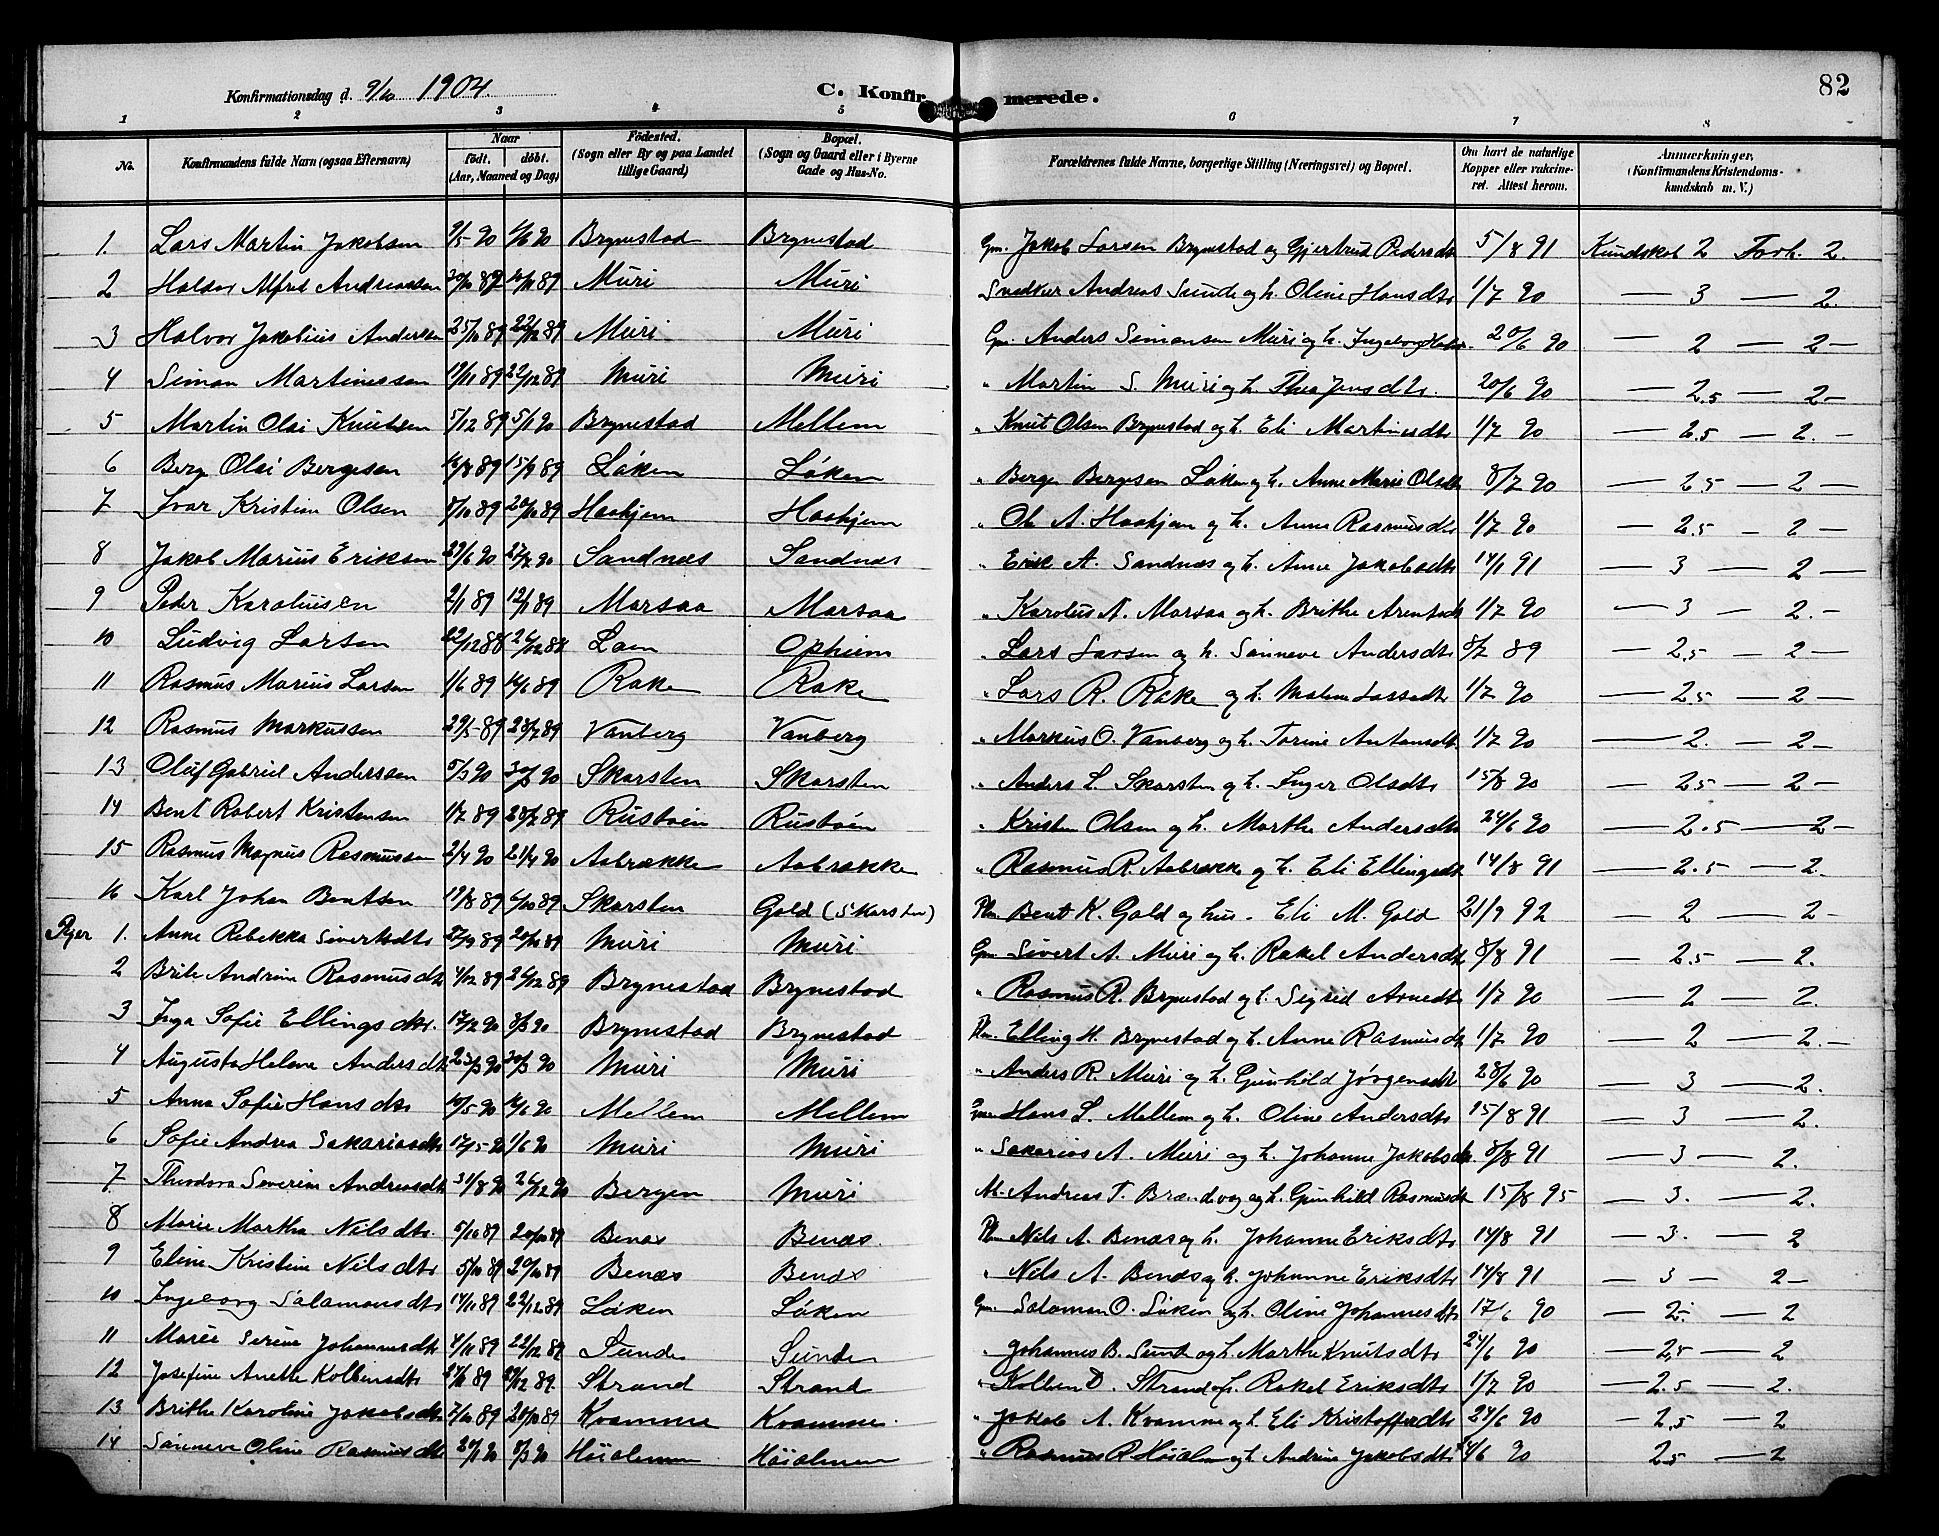 82
Konfirmationsdag d. 9/10 1904. C. Konfirmerede.
1 2 3 4 5 6 7 8
No. Konfirmandens fulde Navn (ogsaa Efternavn) Naar födt. döbt. (Aar, Maaned og Dag) Födested. (Sogn eller By og paa Landet tillige Gaard) Bopæl. (Sogn og Gaard eller i Byerne Gade og Hus-No. Forældrenes fulde Navne, borgerlige Stilling (Næringsvei) og Bopæl. Om havt de naturlige Kopper eller vakcineret. Attest herom. Anmærkninger. (Konfirmandens Kristendomskundskab m. V.)
1. Lars Martin Jakobsen 9/5 90 6/6 90 Brynestad Brynestad Gm. Jakob Larsen Brynestad og Gjertrud Pedersdtr 5/8 91 Kundskab 2 Forh. 2.
2 Haldor Alfred Andreassen 30/10 89 89 Muri Muri Snedker Andreas Sunde og h. Oline Hansdtr 1/7 90 — 3 — 2.
3 Halvor Jakobius Andersen 25/10 89 22/12 89 Muri Muri Gm. Anders Simonsen Muri og h. Ingeborg 20/6 90 — 2 — 2 —
4 Simon Martinussen 19/11 89 22/12 89 Muri Muri " Martin S. Muri og h. Thea Jensdtr. 20/6 90 — 2.5 — 2 —
5 Martin Olai Knutsen 5/12 89 5/1 90 Brynestad Mellem " Knut Olsen Brynestad og h. Eli Martinusdtr 1/7 90 — 2.5 — 2. —
6 Berge Olai Bergesen 16/8 89 15/9 89 Løken Løken " Berge Bergesen Løken og h. Anne Marie Olsdtr 8/7 90 — 2.5 — 2 —
7 Ivar Kristian Olsen 8/10 89 20/10 89 Haahjem Haahjem " Ole A. Haahjem og h. Anne Rasmusdtr 1/7 90 — 2.5 — 2 —
8 Jakob Marius Eriksen 29/6 90 27/7 90 Sandnæs Sandnæs " Erik A. Sandnæs og h. Anne Jakobsdtr 14/1 91 — 3 — 2 —
9 Peder Karolusen 2/1 89 12/1 89 Marsaa Marsaa " Karolus N. Marsaa og h. Brithe Arentsdtr 1/7 90 — 3 — 2. —
10 Ludvig Larsen 22/12 88 26/12 88 Lam Opheim " Lars Larsen og h. Sønneve Andersdtr 8/7 89 — 2.5 — 2 —
11 Rasmus Marius Larsen 1/6 89 16/6 89 Rake Rake " Lars R. Rake og h. Malene Lassedtr 1/7 90 — 2.5 — 2 —
12 Rasmus Markussen 29/5 89 28/7 89 Vanberg Vanberg " Markus O. Vanberg og h. Torine Antonsdtr 1/7 90 — 2. — 2 —
13 Oluf Gabriel Anderssen 5/3 90 30/3 90 Skarsten Skarsten " Anders L. Skarsten og h. Inger Olsdtr 15/8 90 — 2.5 — 2 —
14 Bent Robert Kristensen 1/7 89 28/7 89 Rustøen Rustøen " Kristen Olsen og h. Marthe Andersdtr 24/6 90 — 2.5 — 2 —
15 Rasmus Magnus Rasmussen 2/4 90 21/4 90 Aabrække Aabrække " Rasmus R. Aabrække og h. Eli Ellingsdtr 14/8 91 — 2.5 — 2.
16 Karl Johan Bentsen 19/8 89 6/10 89 Skarsten Gold (Skarsten) Plm. Bent K. Gold og hus. Eli M. Gold 21/9 92 — 2 — 2 —
Piger 1. Anne Rebekka Sivertsdtr 27/9 89 20/10 89 Muri Muri Gm. Sivert A. Muri og h. Rakel Andersdtr 8/8 91 — 2.5 — 2.
2 Brite Andrine Rasmusdtr 4/12 89 26/12 89 Brynestad Brynestad " Rasmus R. Brynestad og h. Sigrid Arnedtr 1/7 90 — 2 — 2.
3 Inga Sofie Ellingsdtr. 17/2 90 8/3 90 Brynestad Brynestad Plm. Elling H. Brynestad og h. Anne Rasmusdtr 1/7 90 — 2 — 2. —
4 Augusta Helene Andersdtr 23/3 90 30/3 90 Muri Muri " Anders R. Muri og h. Gunhild Jørgensdtr 28/6 90 — 3 — 2.
5 Anna Sofie Hansdtr 10/5 90 16/6 90 Mellem Mellem Gm. Hans L. Mellem og h. Oline Andersdtr 15/8 91 — 3 — 2.
6 Sofie Andrea Sakariasdtr 17/5 90 1/6 90 Muri Muri " Sakarias A. Muri og h. Johanne Jakobsdtr. 8/8 91 — 3 — 2.
7. Theodora Severine Andreasdtr 31/8 90 26/12 90 Bergen Muri Andreas T. Brændvog og h. Gunhild Rasmusdtr 15/8 95 — 3. — 2.
8 Marie Martha Nilsdtr 5/10 89 20/10 89 Benæs Benæs. Plm Nils A. Benæs og h. Johanne Eriksdtr 14/8 91 — 3. — 2
9 Eline Kristine Nilsdtr 5/10 89 20/10 89 Benæs Benæs " Nils A. Benæs og h. Johanne Eriksdtr 14/8 91 — 3 — 2 —
10 Ingeborg Salamonsdtr 14/11 89 22/12 89 Løken Løken Gm. Salamon O. Løken og h. Oline Johannesdtr 17/6 90 — 2. — 2
11 Marie Serine Johannesdtr 4/11 89 22/12 89 Sunde Sunde " Johannes B. Sunde og h. Marthe Knutsdtr 24/6 90 — 2.5 — 2
12 Josefine Anette Kolbensdtr 24/11 89 29/12 89. Strand Strand " Kolben O. Strand og h. Rakel Eriksdtr 1/7 90 — 2.5 — 2.
13 Brithe Karoline Jakobsdtr 7/10 89 20/10 89 Kvamme Kvamme. " Jakob A. Kvamme og h. Eli Kristofferdtr 24/6 90 — 2.5 — 2
14 Sønneve Oline Rasmusdtr 20/1 90 8/3 90 Høialmen Høialmen " Rasmus R. Høialm og h. Andrine Jakobsdtr 4/6 90 2.5 — 2